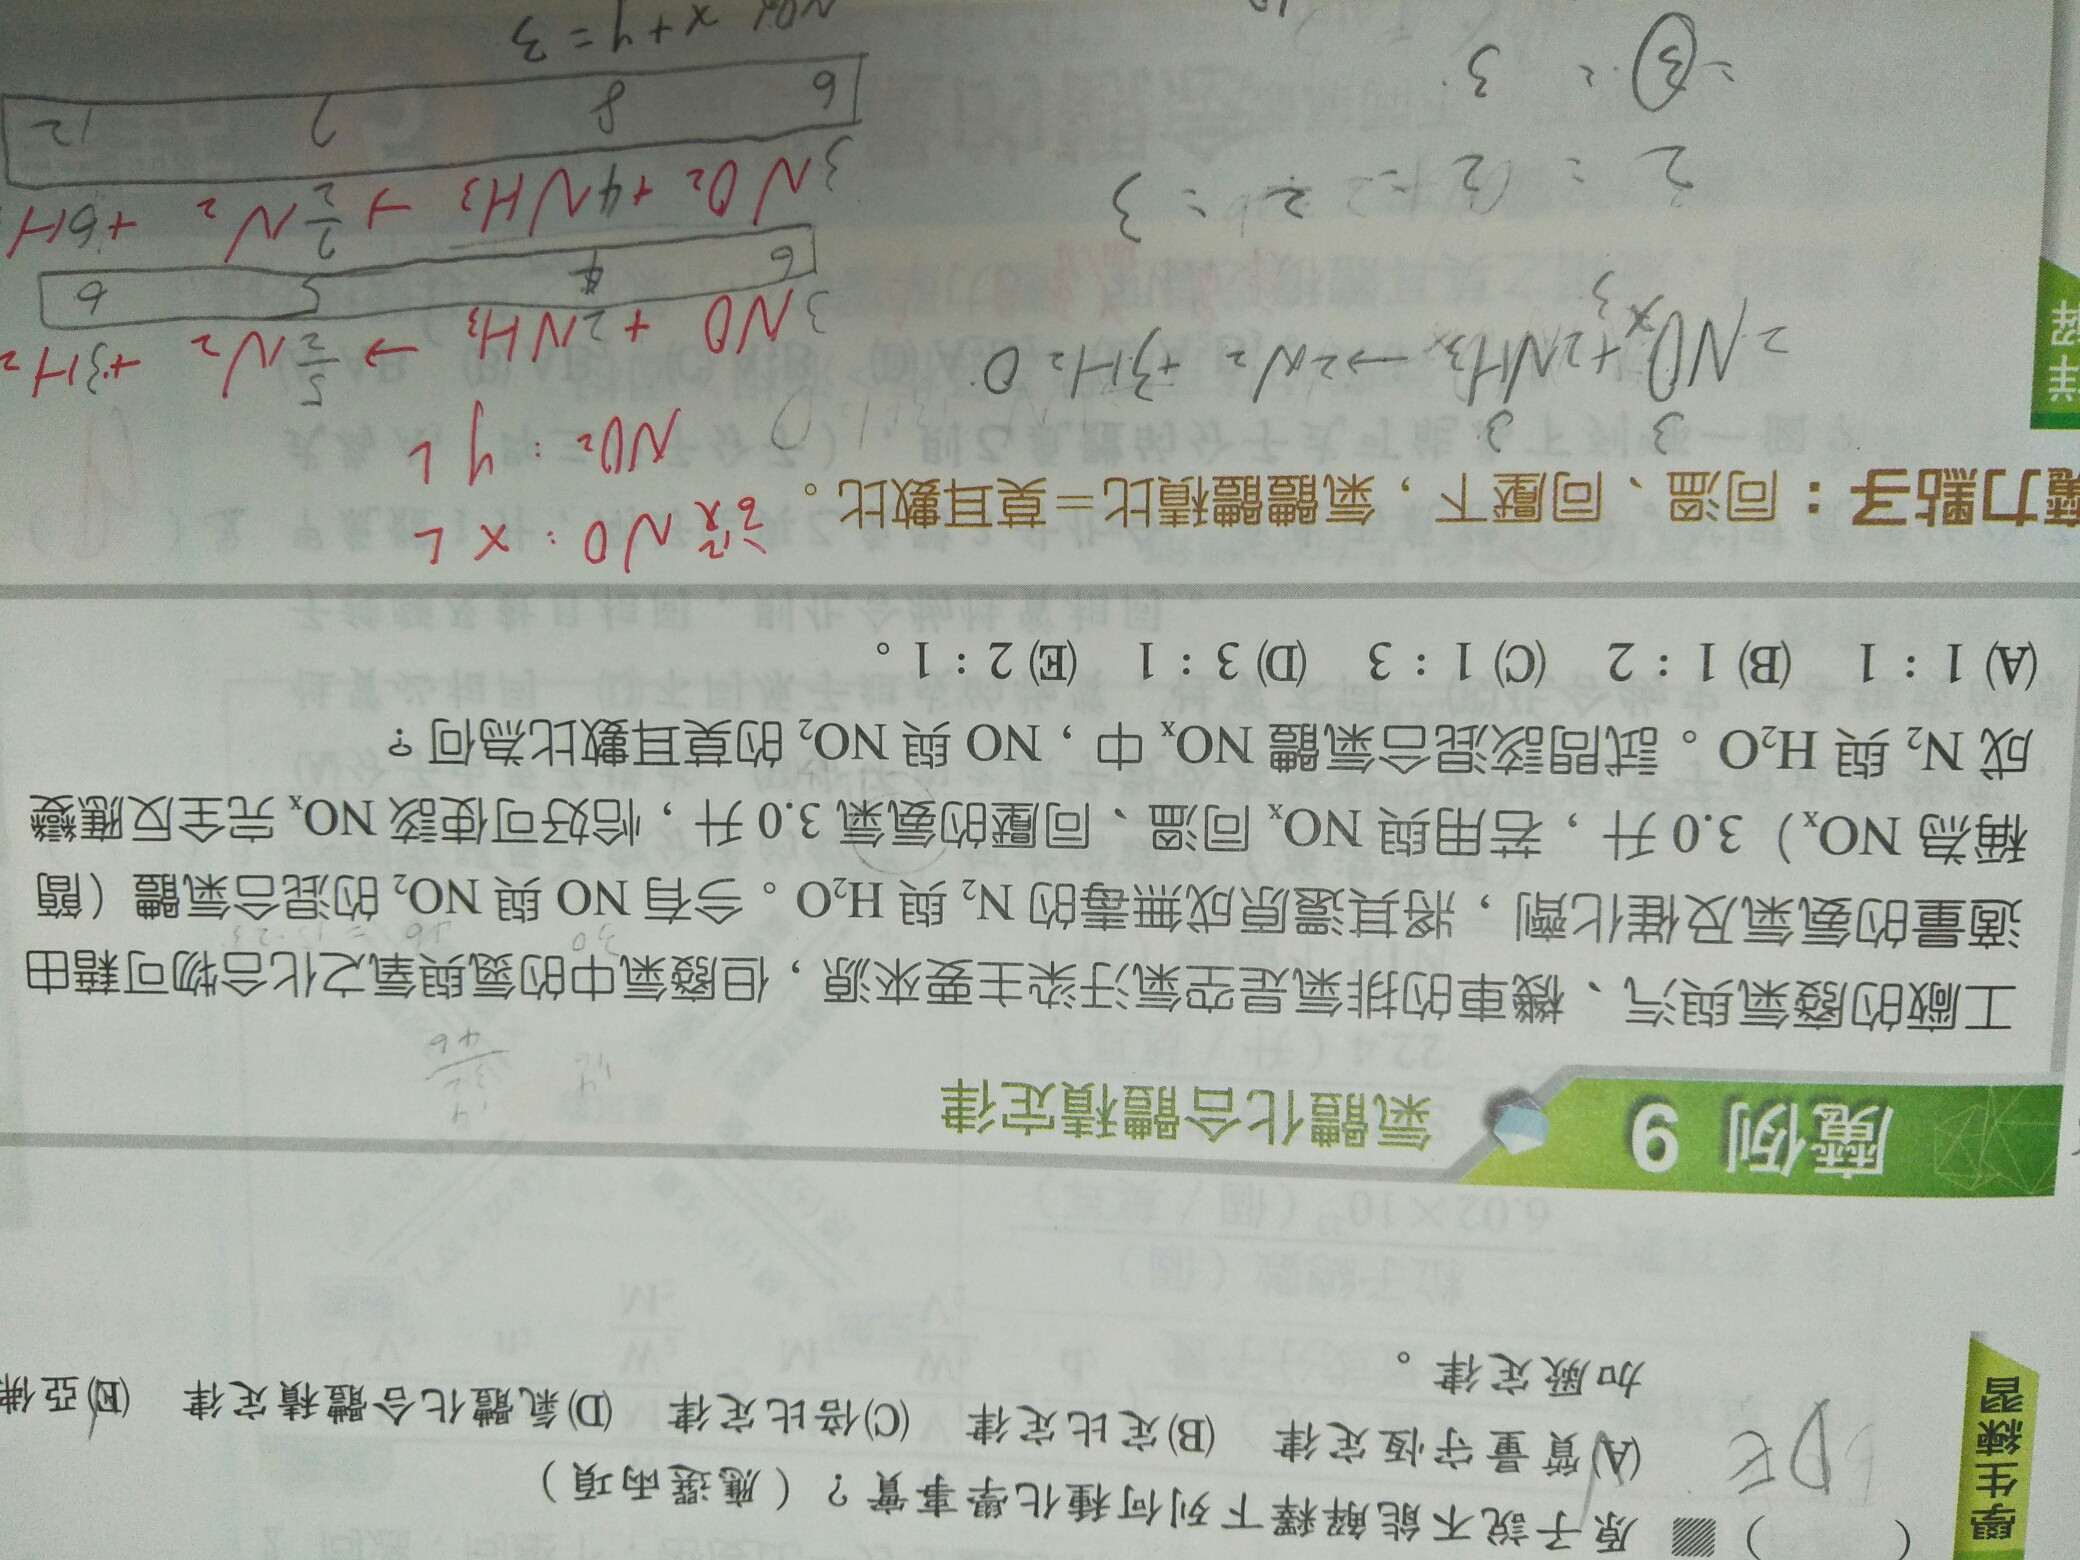 學生練習
( ) 原子說不能解釋下列何種化學事實?(應選兩項)
(A)質量守恆定律 (B)定比定律 (C)倍比定律 (D)氣體化合體積定律 (E)亞佛
加厥定律。
DE
魔例 9 氣體化合體積定律
工廠的廢氣與汽、機車的排氣是空氣汙染主要來源,但廢氣中的氮與氧之化合物可藉由
適量的氨氣及催化劑,將其還原成無毒的 N₂ 與 H₂O。今有 NO 與 NO₂ 的混合氣體(簡
稱為 NOₓ)3.0 升,若用與 NOₓ 同溫、同壓的氨氣 3.0 升,恰好可使該 NOₓ 完全反應變
成 N₂ 與 H₂O。試問該混合氣體 NOₓ 中,NO 與 NO₂ 的莫耳數比為何?
(A) 1:1 (B) 1:2 (C) 1:3 (D) 3:1 (E) 2:1。
魔力點子:同溫、同壓下,氣體體積比=莫耳數比。
設 NO : x L
NO₂ : y L
3 3
2NOₓ+2NH₃→2N₂ +3H₂O
3NO +2NH₃ → 5/2 N₂ +3H₂
6 4 5 6
3NO₂ +4NH₃ → 7/2 N₂ +6H
6 8 7 12
x+y=3